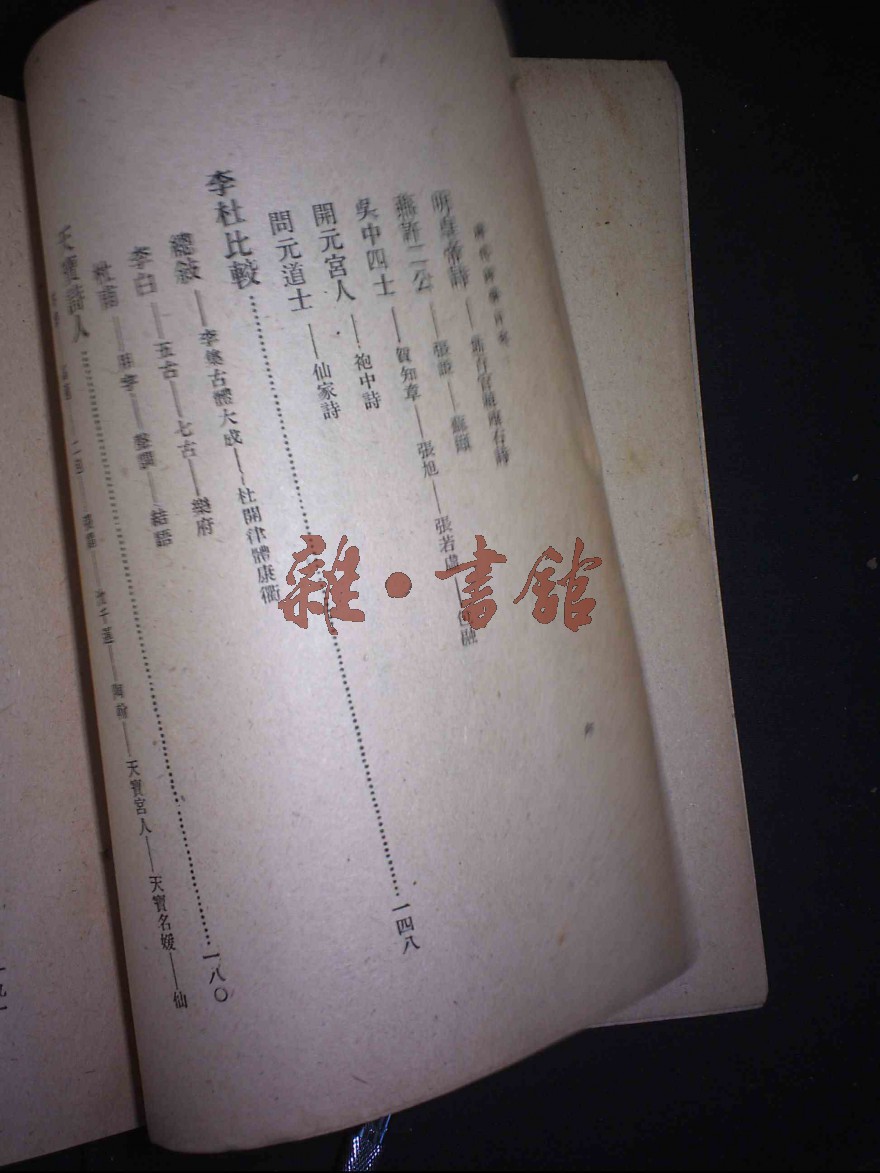 明皇帝詩——
燕許二公——張說——蘇頲
吳中四士——賀知章——張旭——張若虛——包融
開元宮人——袍中詩
問元道士——仙家詩
李杜比較……一四八
總敍——李集古體大成——杜開律體康衢
李白——五古——七古——樂府
杜甫——用字——聲調——結語
天寶詩人……一八〇
天寶宮人——天寶名媛——仙
雜·書館